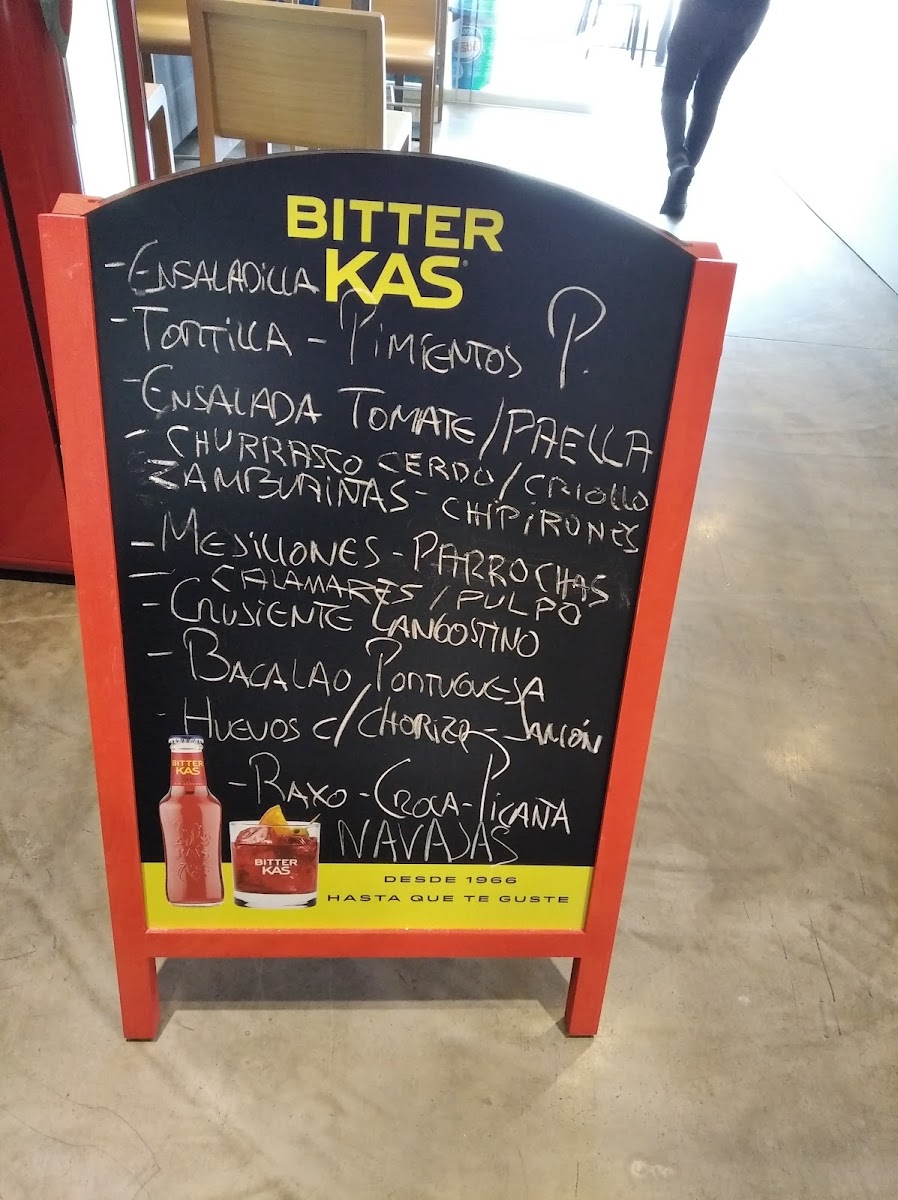 BITTER
KAS
- ENSALADILLA
- TORTILLA - PIMIENTOS P.
- ENSALADA TOMATE / PAELLA
- CHURRASCO CERDO / CRIOLLO
ZAMBURIÑAS - CHIPIRONES
- MEJILLONES - PARROCHAS
- CALAMARES / PULPO
- CRUSIENTE LANGOSTINO
- BACALAO PORTUGUESA
- HUEVOS C/ CHORIZO - JAMÓN
- RAXO - CROCA - PICAÑA
NAVAJAS
BITTER
KAS
BITTER
KAS
DESDE 1966
HASTA QUE TE GUSTE